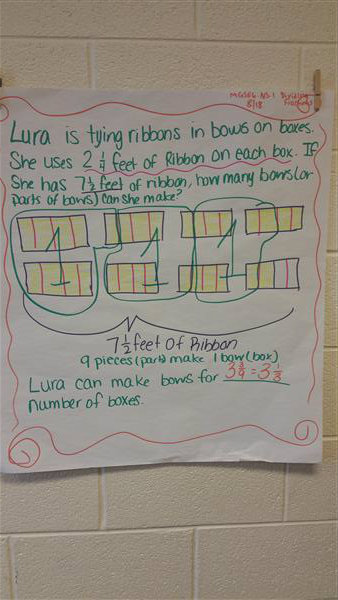 MGSE6.NS.1 Dividing
8/18 Fractions
Lura is tying ribbons in bows on boxes.
She uses 2 1/4 feet of Ribbon on each box. If
She has 7 1/2 feet of ribbon, how many bows (or
parts of bows) can she make?
1 1 1
7 1/2 feet of Ribbon
9 pieces (parts) make 1 bow (box)
Lura can make bows for 3 3/9 = 3 1/3
number of boxes.